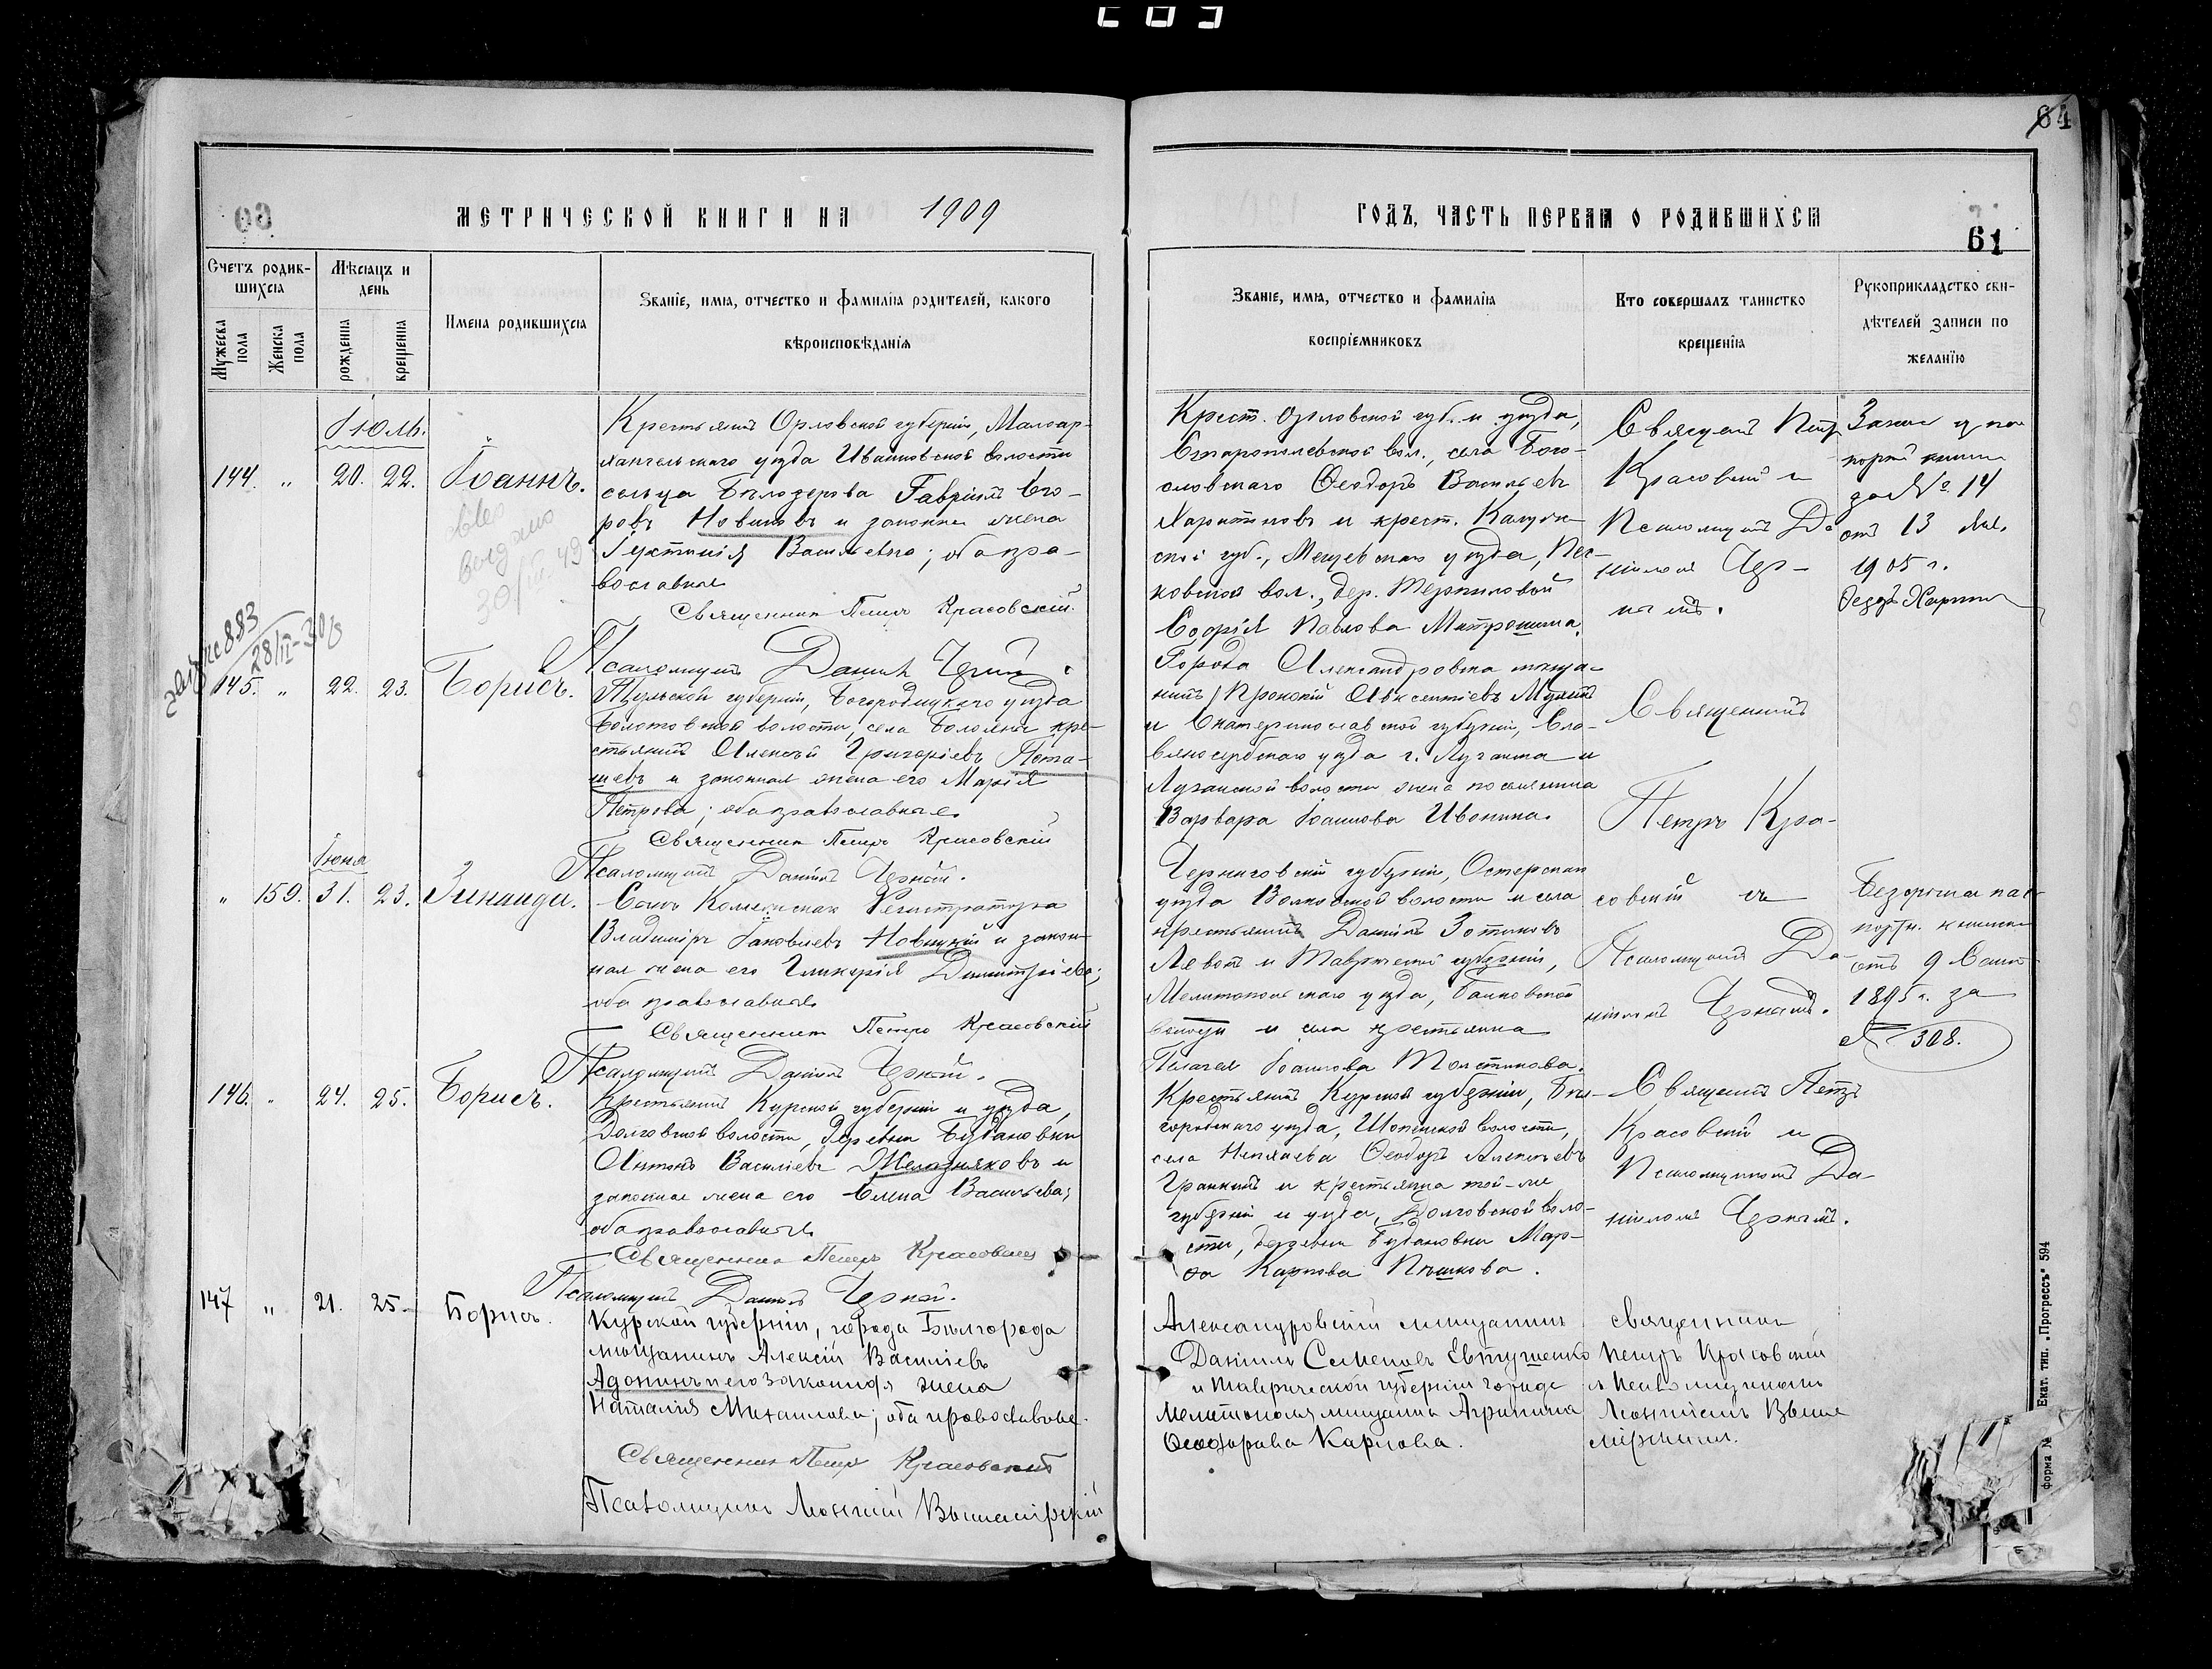 64
60
МЕТРИЧЕСКОЙ КНИГИ НА 1909
ГОДЪ, ЧАСТЬ ПЕРВАЯ О РОДИВШИХСЯ
61
Счетъ родившихся
Мужеска пола
Женска пола
Мѣсяцъ и день
рожденія
крещенія
Имена родившихся
Званіе, имя, отчество и фамилія родителей, какого
вѣроисповѣданія
Званіе, имя, отчество и фамилія
воспріемниковъ
Кто совершалъ таинство
крещенія
Рукоприкладство сви-
дѣтелей записи по
желанію
Іюль.
144. " 20. 22. Іоаннъ.
Крестьянинъ Орловской губерніи, Малоар-
хангельскаго уѣзда Ивановской волости
сельца Бѣлозерова Гавріилъ Его-
ровъ Новиковъ и законная жена
Іустинія Васильевна; оба пра-
вославные
Священникъ Петръ Красовскій.
Псаломщикъ Даніилъ Черный
Крест. Орловской губ. и уѣзда,
вол., села Бого-
словскаго Ѳеодоръ Васильевъ
Харитоновъ и крест. Калуж-
ской губ., Мещевскаго уѣзда,
вол., дер.
Софія Павлова Митрошина.
Священникъ Петръ
Красовскій и
Псаломщикъ Да-
ніилъ Чер-
ный.
за № 14
отъ 13
1905 г.
145. " 22. 23. Борисъ.
Тульской губерніи, Богородицкаго уѣзда
волости, села крe-
стьянинъ Алексѣй Григоріевъ Пота-
шевъ и законная жена его Марія
Петрова; оба православные
Священникъ Петръ Красовскій
Псаломщикъ Даніилъ Черный.
Города Александровска мѣща-
нинъ Прокопій Авксентіевъ
и Екатеринославской губерніи, Сла-
вяносербскаго уѣзда г. Луганска и
Луганской волости жена поселянина
Варвара Іоаннова Ивонина.
Священникъ
Петръ Кра-
совскій съ
Псаломщикомъ Да-
ніиломъ Чернымъ.
Іюня
" 159. 31. 23. Зинаида.
Сынъ Коллежскаго Регистратора
Владиміръ Іаковлевъ Новицкій и закон-
ная жена его Гликерія Димитріева;
оба православные
Священникъ Петръ Красовскій
Псаломщикъ Даніилъ Черный.
Черниговской губерніи, Остерскаго
уѣзда волости и села
крестьянинъ Даніилъ Зотиковъ
и Таврической губерніи,
Мелитопольскаго уѣзда,
волости и села крестьянка
Пелагея Іоаннова Толстикова.
Безсрочная пас-
портн. книжка
отъ 9
1895 г. за
№ 308.
146. " 24. 25. Борисъ.
Крестьянинъ Курской губерніи и уѣзда,
Долговской волости, деревни Будановки
Антонъ Василіевъ Желѣзняковъ и
законная жена его Елена Васильева;
оба православные
Священникъ Петръ Красовскій
Псаломщикъ Даніилъ Черный.
Крестьянинъ Курской губерніи, Бѣл-
городскаго уѣзда, Шопинской волости,
села Непхаева Ѳеодоръ Алексѣевъ
Гранкинъ и крестьянка той-же
губерніи и уѣзда, Долговской воло-
сти, деревни Будановки Мар-
ѳа Карпова Пѣшкова.
Священникъ Петръ
Красовскій и
Псаломщикомъ Да-
ніиломъ Чернымъ.
147 " 21. 25. Борисъ.
Курской губерніи, города Бѣлгорода
мѣщанинъ Алексій Василіевъ
Адонинъ и его законная жена
Наталія Михаилова; оба православные.
Священникъ Петръ Красовскій
Псаломщикъ Лонгинъ Вышемірскій
Александровскій мѣщанинъ
Даніилъ Семеновъ Евтушенко
и Таврической губерніи города
Мелитополя мѣщанка Агрипина
Ѳеодорова Карпова.
Священникъ
Петръ Красовскій
и Псаломщикомъ
Лонгиномъ Выше
мірскимъ.
Екат. тип. „Прогрессъ" 594
форма №